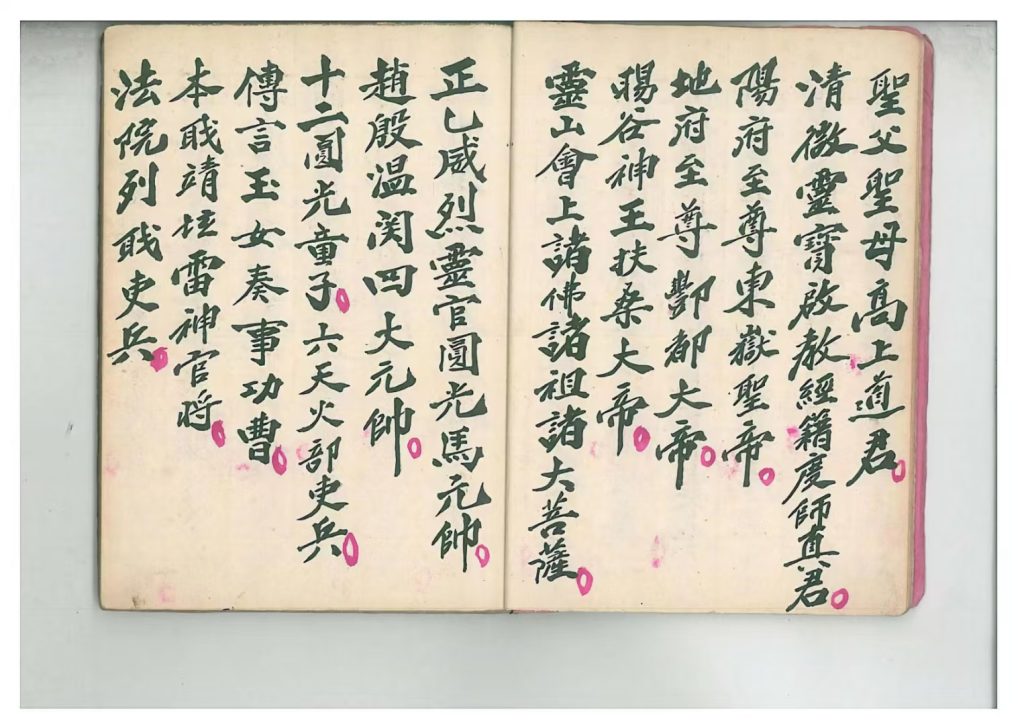 聖父聖母高上道君
清微靈寳啟教經籍度師真君
陽府至尊東嶽聖帝
地府至尊酆都大帝
賜谷神王扶桑大帝
靈山會上諸佛諸祖諸大菩薩
正乙威烈靈官圓光馬元帥
趙殷温関四大元帥
十二圓光童子六天火部吏兵
傳言玉女奏事功曹
本戝靖坛雷神官將
法院列戝吏兵